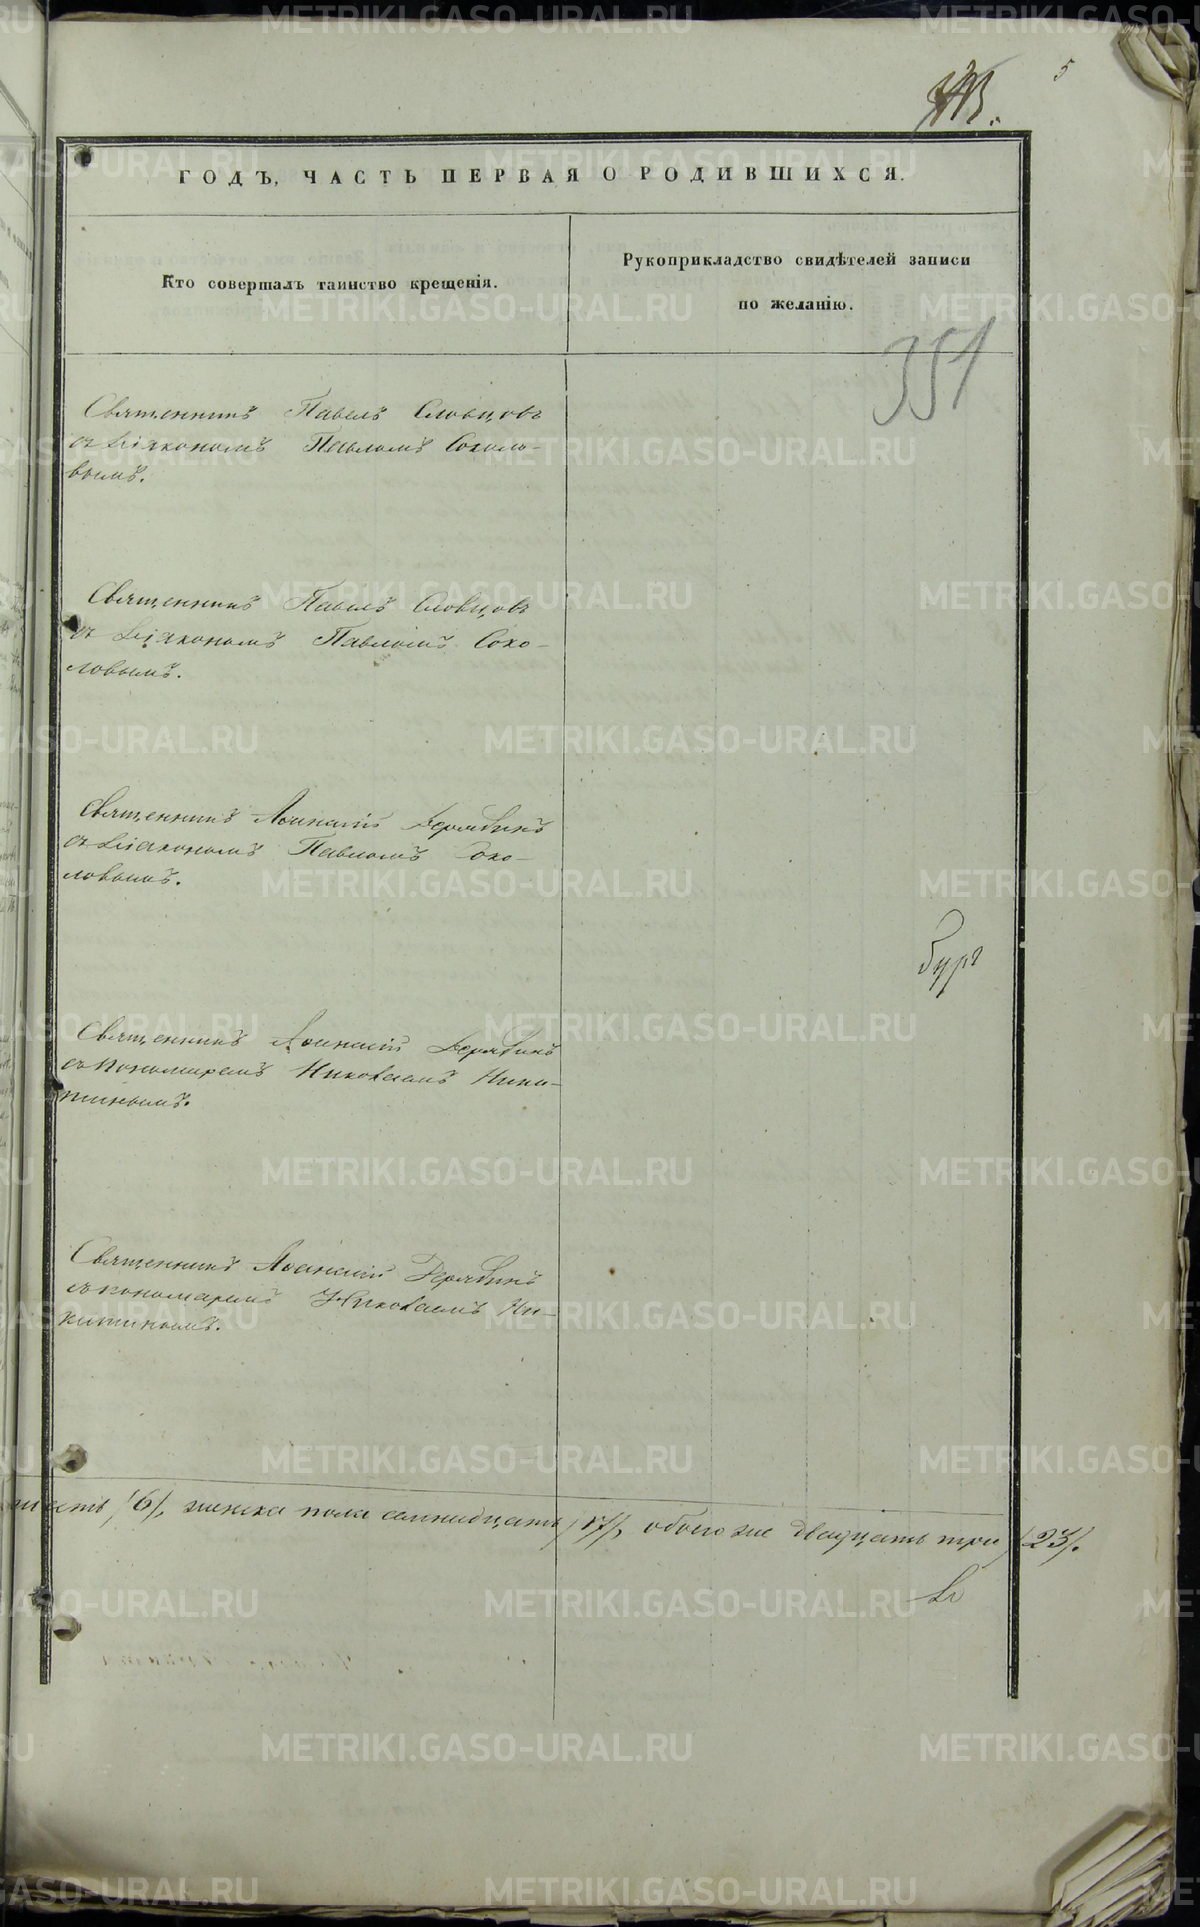 5
ГОДЪ, ЧАСТЬ ПЕРВАЯ О РОДИВШИХСЯ.
Кто совершалъ таинство крещенія.
Рукоприкладство свидѣтелей записи
по желанію.
351
Священникъ Павелъ Словцовъ
съ Діякономъ Павломъ Соколо-
вымъ.
Священникъ Павелъ Словцовъ
съ Діякономъ Павломъ Соко-
ловымъ.
Священникъ Афанасій Дерябинъ
съ Діякономъ Павломъ Соко-
ловымъ.
бургъ
Священникъ Афанасій Дерябинъ
съ Пономаремъ Николаемъ Ники-
тинымъ.
Священникъ Афанасій Дерябинъ
съ пономаремъ Николаемъ Ни-
китинымъ.
шесть /6/, женска пола семнадцать /17/, обоего же двадцать три /23/.
METRIKI.GASO-URAL.RU